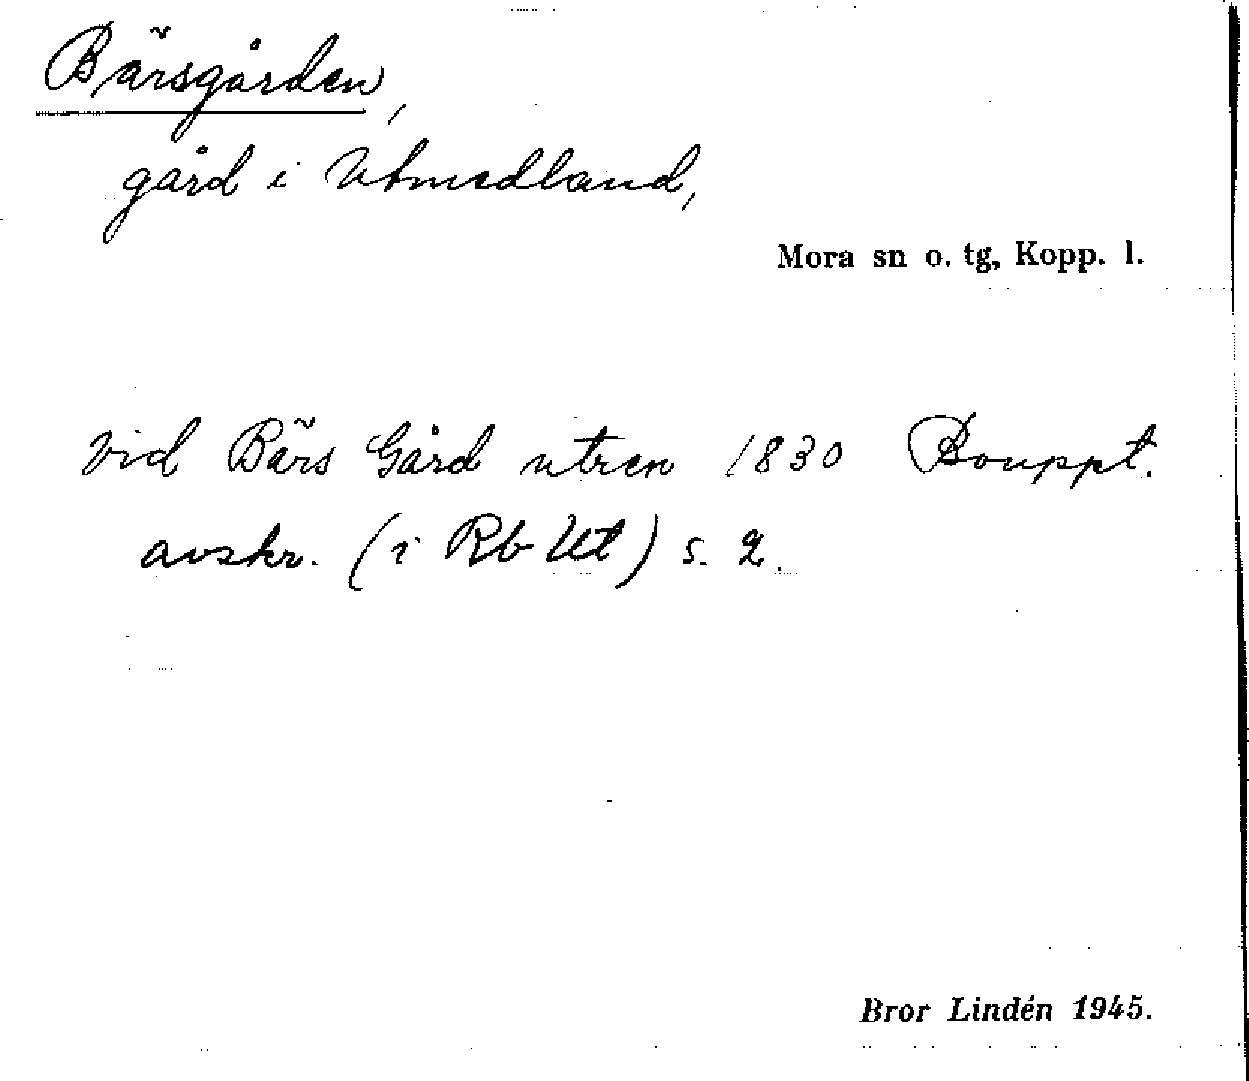 Bärsgården,
gård i Utmedland,
Mora sn o. tg, Kopp. l.
vid Bärs Gård utren 1830 Bouppt.
avskr. (i Rb Ut) s. 2.
Bror Lindén 1945.